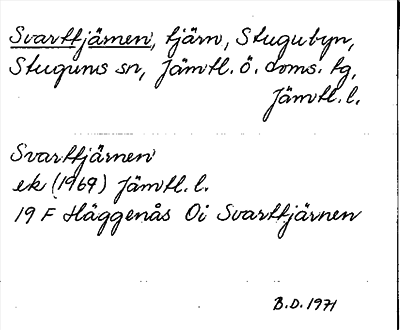 Svarttjärnen, tjärn, Stugubyn,
Stuguns sn, Jämtl. ö. doms. tg,
Jämtl. l.
Svarttjärnen
ek (1969) Jämtl. l.
19 F Häggenås Oi Svarttjärnen
B.D. 1971